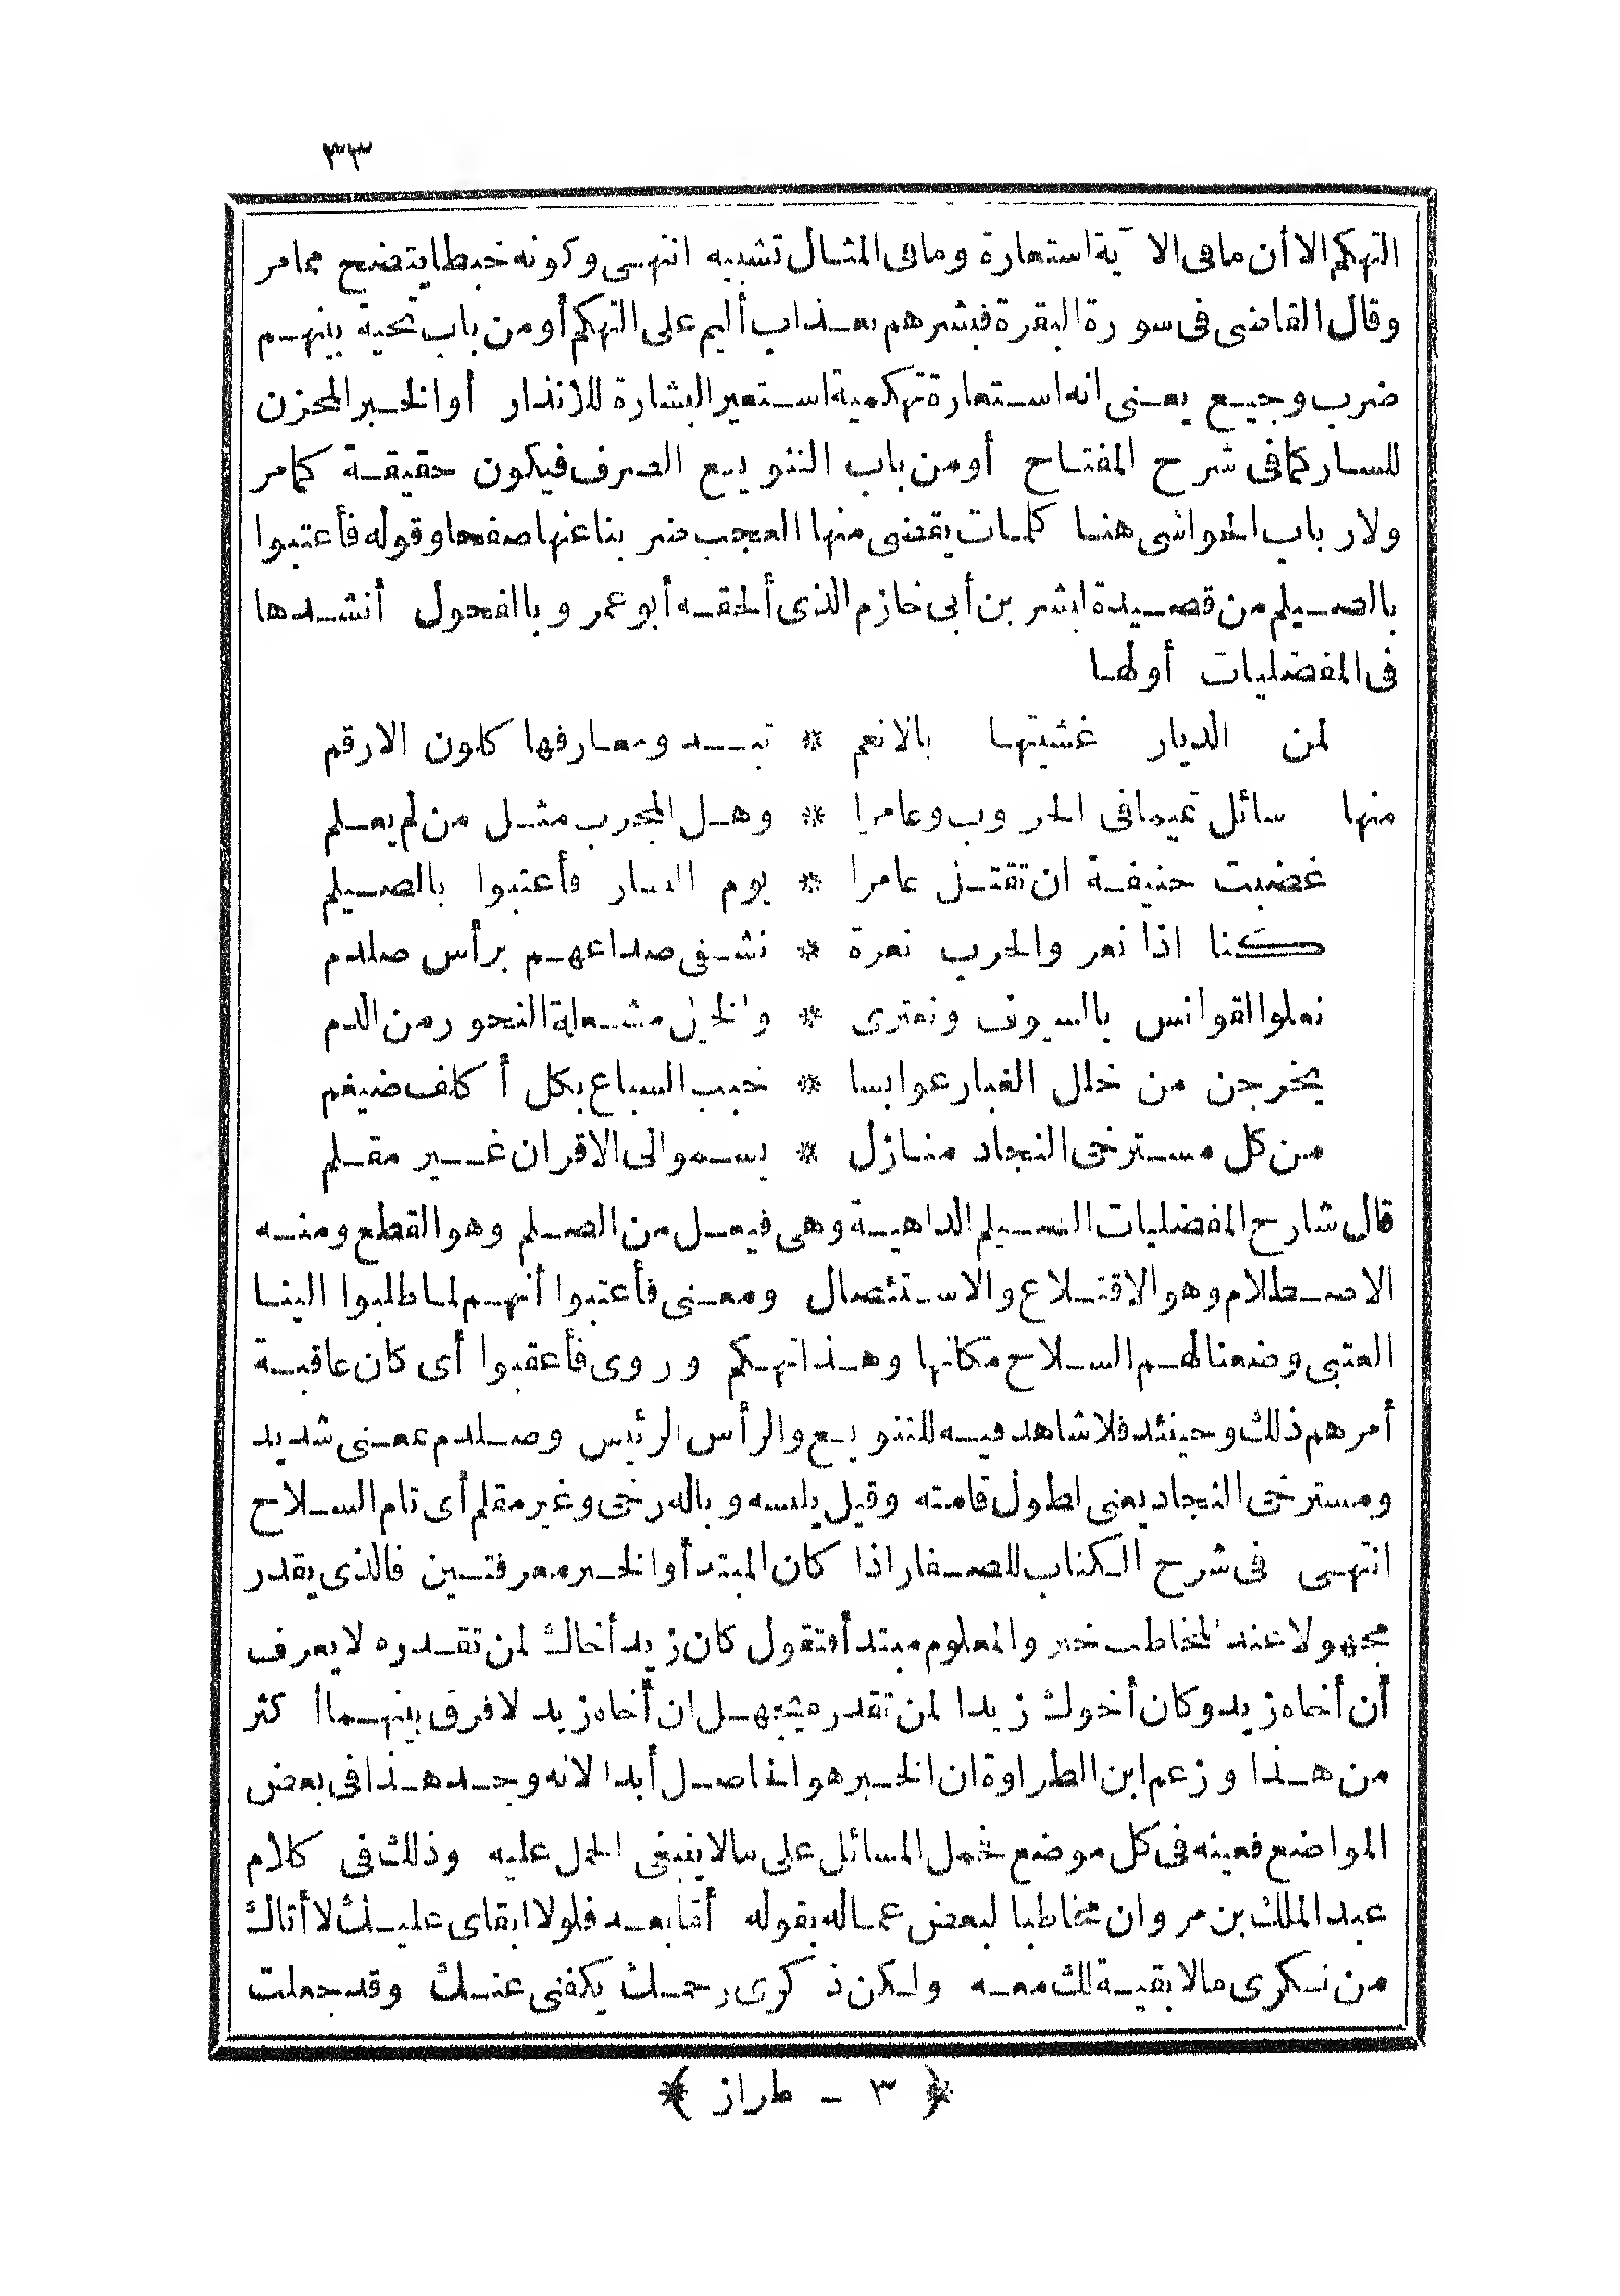 ٣٣
التهكم الا أن ما فى الآية استعارة وما فى المثال تشبيه انتهى وكونه خبطا يتضح مما مر
وقال القاضى فى سورة البقرة فبشرهم بعذاب أليم على التهكم أو من باب تحية بينهم
ضرب وجيع يعنى انه استعارة تهكمية استعير البشارة للانذار أو الخبر المحزن
للسار كما فى شرح المفتاح أو من باب التنويع الصرف فيكون حقيقة كما مر
ولارباب الحواشى هنا كلمات يقضى منها العجب ضربنا عنها صفحا وقوله فأعتبوا
بالصيلم من قصيدة لبشر بن أبى خازم الذى ألحقه أبو عمرو بالفحول أنشدها
فى المفضليات أولها
لمن الديار غشيتها بالانعم * تبدو معارفها كلون الارقم
منها سائل تميما فى الحروب وعامرا * وهل المجرب مثل من لم يعلم
غضبت حنيفة ان تقتل عامرا * يوم النسار فأعتبوا بالصيلم
كنا اذا نعر والحرب نعرة * نشفى صداعهم برأس صلدم
نعلو القوانس بالسيوف ونعترى * والخيل مشعلة النحور من الدم
يخرجن من خلل الغبار عوابسا * خبب السباع بكل أكلف ضيغم
من كل مسترخى النجاد منازل * يسمو الى الاقران غير مقلم
قال شارح المفضليات الصيلم الداهية وهى فيعل من الصلم وهو القطع ومنه
الاصطلام وهو الاقتلاع والاستئصال ومعنى فأعتبوا أنهم لما طلبوا الينا
العتبى وضعنا لهم السلاح مكانها وهذا تهكم وروى فأعقبوا أى كان عاقبة
أمرهم ذلك وحينئذ فلا شاهد فيه للتنويع والرأس الرئيس وصلدم بمعنى شديد
ومسترخى النجاد يعنى لطول قامته وقيل يلبسه وباله رخى وغير مقلم أى تام السلاح
انتهى فى شرح الكتاب للصفار اذا كان المبتدأ والخبر معرفتين فالذى يقدر
مجهولا عند المخاطب خبر والمعلوم مبتدأ فتقول كان زيد أخاك لمن تقدره لا يعرف
أن أخاه زيد وكان أخوك زيدا لمن تقدره يجهل ان أخاه زيد لا فرق بينهما أكثر
من هذا وزعم ابن الطراوة ان الخبر هو الحاصل أبدا لانه وجد هذا فى بعض
المواضع فعينه فى كل موضع فحمل المسائل على مالا ينبغى الحمل عليه وذلك فى كلام
عبد الملك بن مروان مخاطبا لبعض عماله بقوله أما بعد فلولا ابقاى عليك لا أتاك
من نكرى مالا بقية لك معه ولكن ذكرى رحمك يكفنى عنك وقد جعلت
﴿ ٣ - طراز ﴾